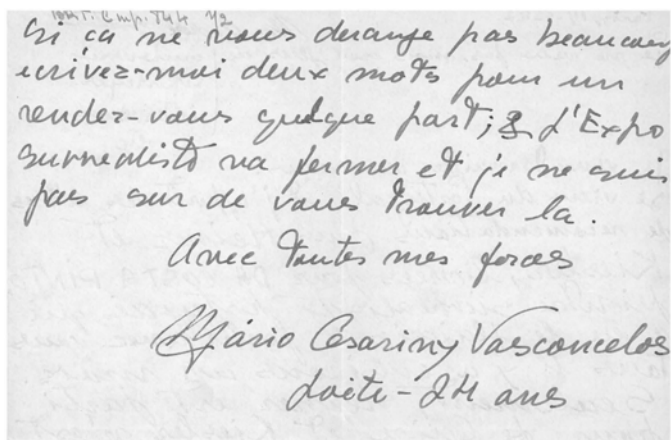 Si ça ne vous derange pas beaucoup
ecrivez-moi deux mots pour un
rendez-vous quelque part; L'Expo
surrealiste va fermer et je ne suis
pas sur de vous trouver la.
Avec toutes mes forces
Mário Césariny Vasconcelos
24 ans